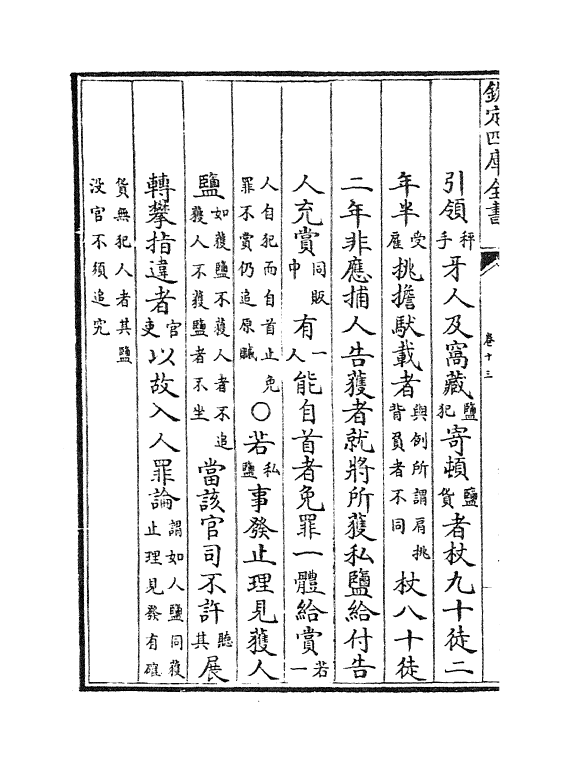 欽定四庫全書
卷十三
引領秤手牙人及窩藏鹽犯寄頓鹽貨者杖九十徒二
年半受雇挑擔馱載者與例所謂肩挑背負者不同杖八十徒
二年非應捕人告獲者就將所獲私鹽給付告
人充賞同販中有一人能自首者免罪一體給賞若一
人自犯而自首止免罪不賞仍追原贓○若私鹽事發止理見獲人
鹽如獲鹽不獲人者不追獲人不獲鹽者不坐當該官司不許聽其展
轉攀指違者官吏以故入人罪論謂如人鹽同獲止理見發有確
貨無犯人者其鹽没官不須追究